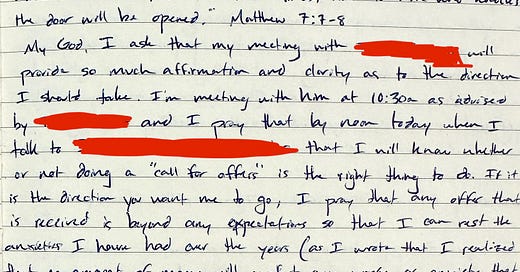 the door will be opened." Matthew 7:7-8
My God, I ask that my meeting with will
provide so much affirmation and clarity as to the direction
I should take. I'm meeting with him at 10:30a as advised
by and I pray that by noon today when I
talk to that I will know whether
or not doing a "call for offers" is the right thing to do. If it
is the direction you want me to go, I pray that any offer that
is received is beyond any expectations so that I can rest the
anxieties I have had over the years (as I wrote that I realized
that no amount of money will